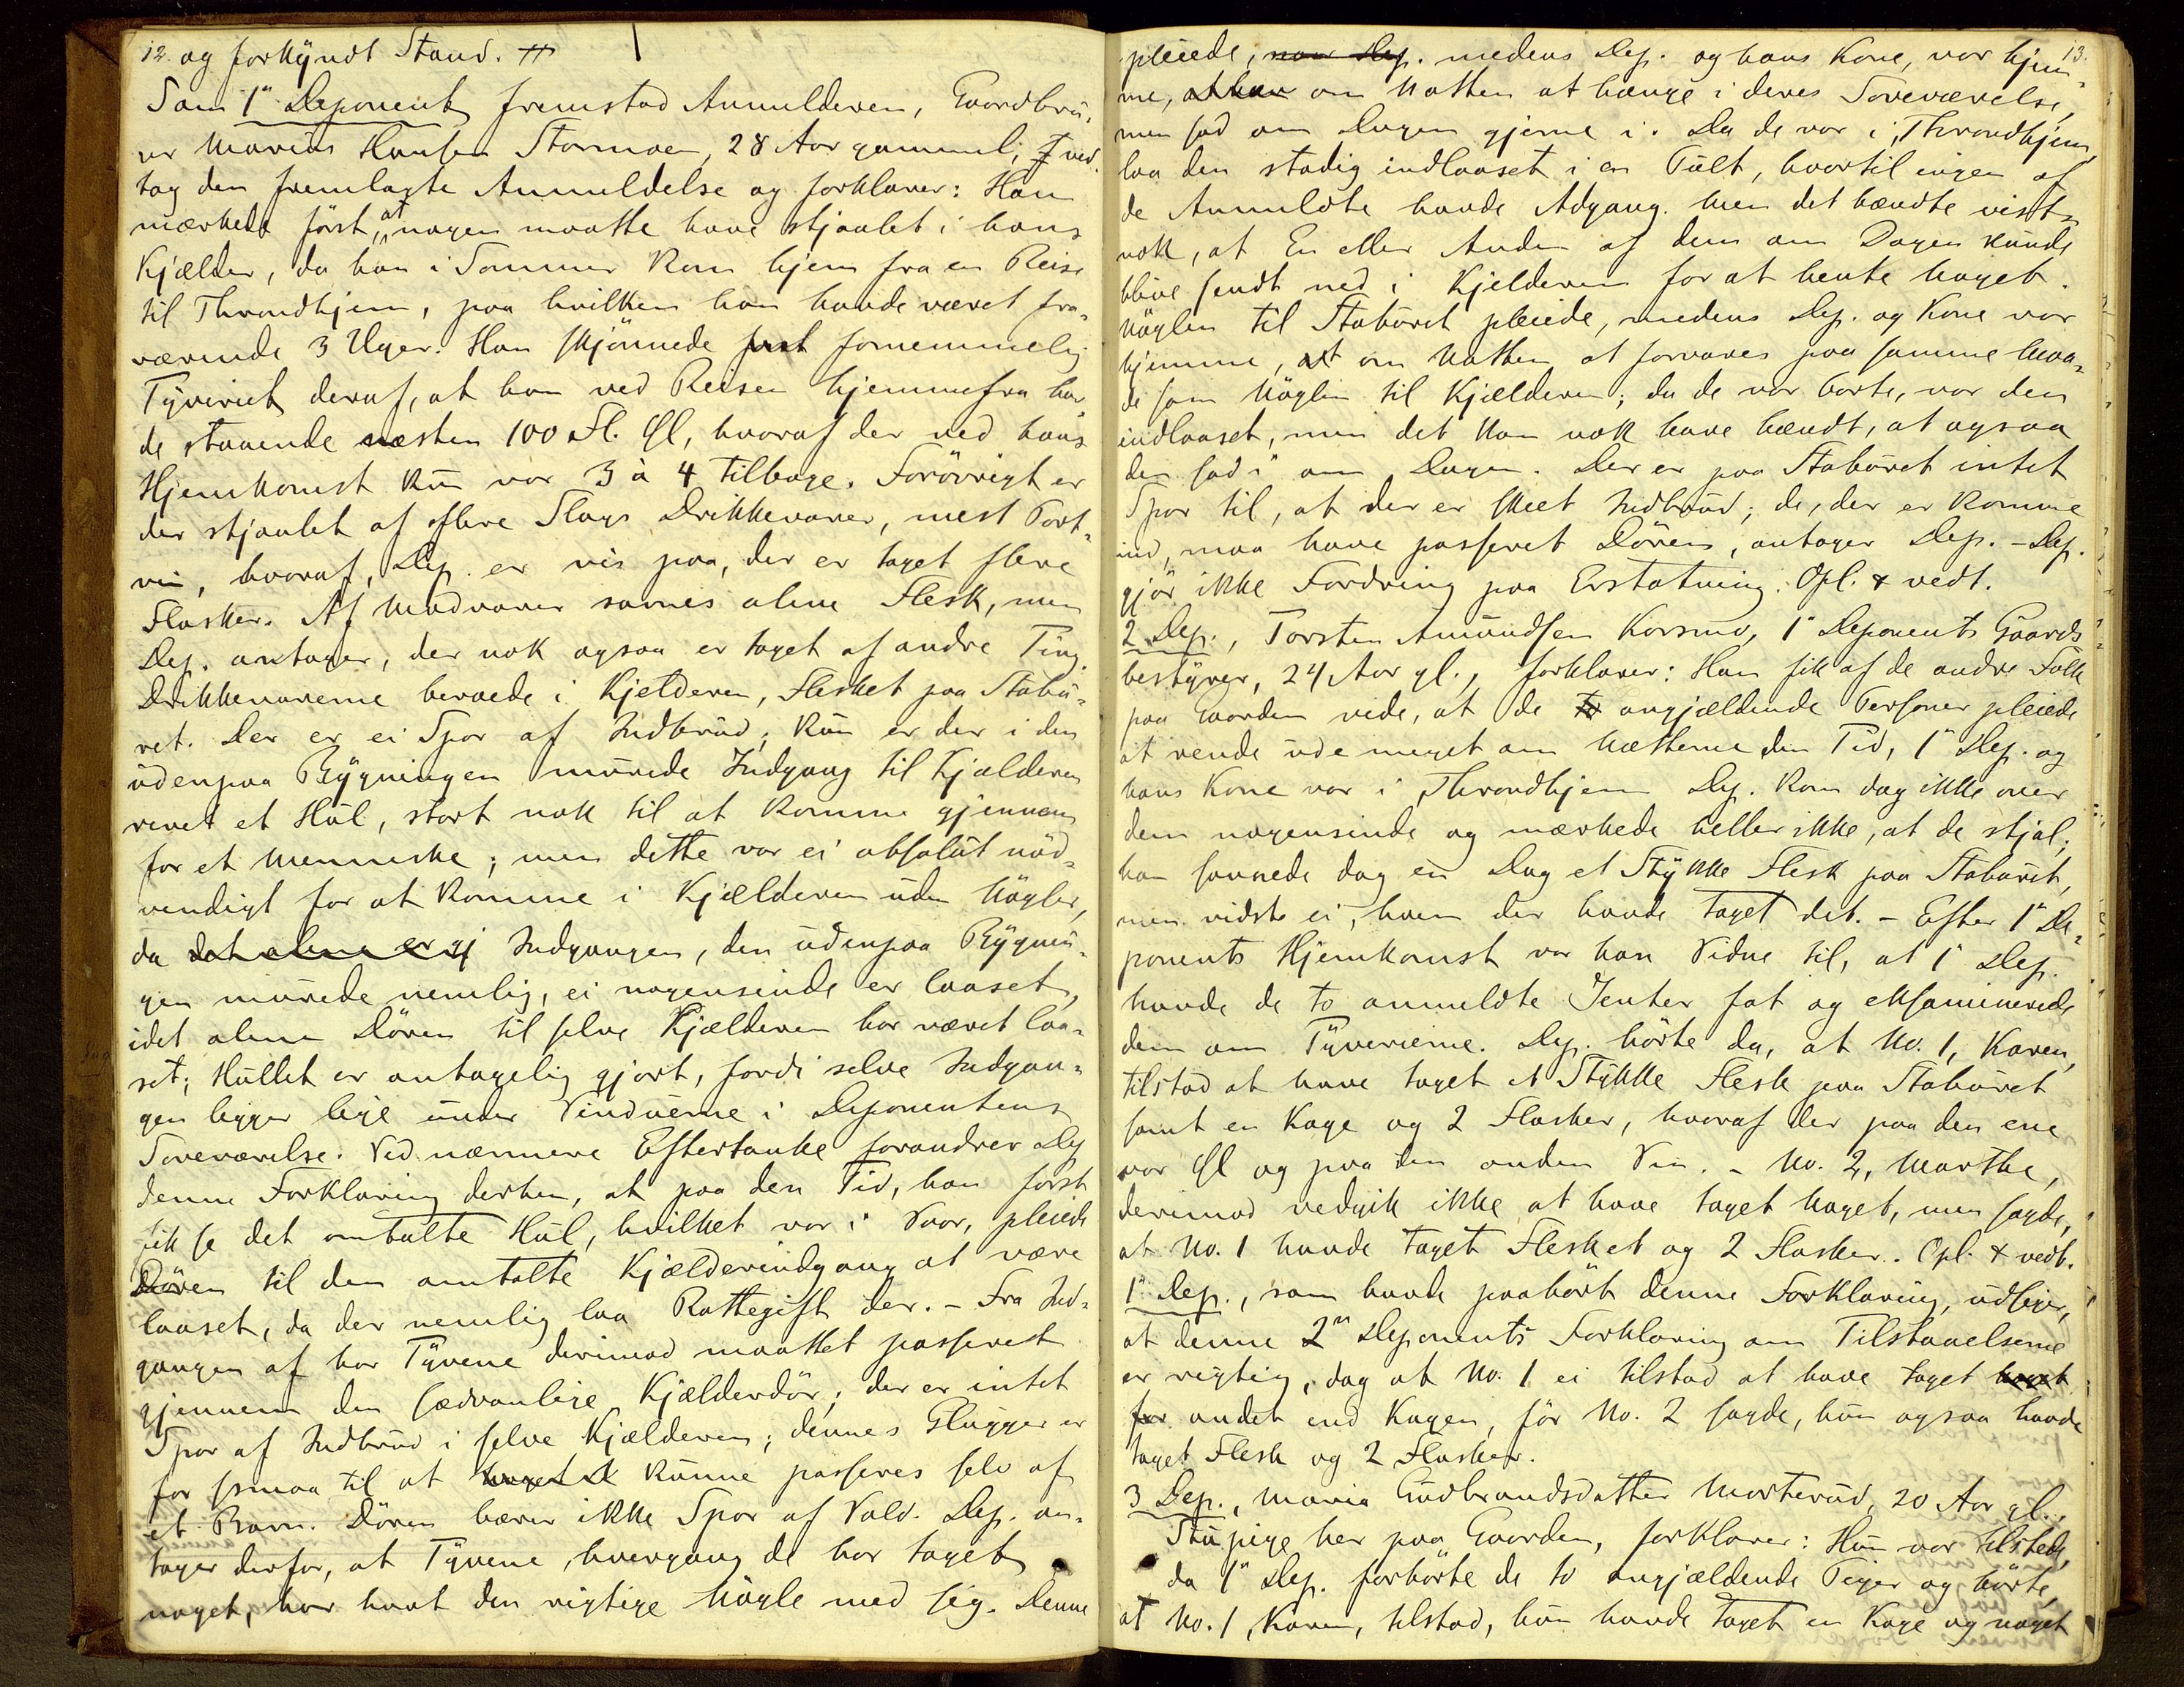 12. og forkyndt Stand. #
Som 1ste Deponent fremstod Anmelderen, Gaardbru-
er Marius Hansen Stormoen, 28 Aar gammel; ved-
tog den fremlagte Anmeldelse og forklarer: Han
mærkede först, at nogen maatte have stjaalet i hans
Kjælder, da han i Sommer kom hjem fra en Reise
til Throndhjem, paa hvilken han havde været fra-
værende 3 Uger. Han skjönnede fornemmelig
Tyveriet deraf, at han ved Reisen hjemmefra hav-
de staaende næsten 100 Fl. Öl, hvoraf der ved hans
Hjemkomst kun var 3 à 4 tilbage. Forövrigt er
der stjaalet af flere Slags Drikkevarer, mest Port-
vin, hvoraf, Dep. er vis paa, der er taget flere
Flasker. Af Madvarer savnes alene Flesk, men
Dep. antager, der nok ogsaa er taget af andre Ting.
Drikkevarerne beroede i Kjelderen, Flesket paa Stabu-
ret. Der er ei Spor af Indbrud; kun er der i den
udenpaa Bygningen murede Indgang til Kjælderen
revet et Hul, stort nok til at komme gjennem
for et Menneske; men dette var ei absolut nöd-
vendigt for at komme i Kjælderen uden Nögler,
da det alene er gj Indgangen, den udenpaa Bygnin-
gen murede nemlig, ei nogensinde er laaset,
idet alene Dören til selve Kjælderen har været laa-
set; Hullet er antagelig gjort, fordi selve Indgan-
gen ligger lige under Vinduerne i Deponentens
Soveværelse. Ved nærmere Eftertanke forandrer Dep
denne Forklaring derhen, at paa den Tid, han först
fik se det omtalte Hul, hvilket var i Vaar, pleiede
Dören til den omtalte Kjælderindgang at være
laaset, da der nemlig laa Rottegift der. - Fra Ind-
gangen af har Tyvene derimod maattet passeret
gjennem den sædvanlige Kjælderdör; der er intet
Spor af Indbrud i selve Kjælderen; dennes Glugger er
for smaa til at kunne passeres selv af
et Barn. Dören bærer ikke Spor af Vold. Dep. an-
tager derfor, at Tyvene, hvergang de har taget
noget, har havt den rigtige Nögle med sig. Denne
13.
pleiede, naar Dep. medens Dep. og hans Kone, var hjem-
me, om Natten at hænge i deres Soveværelse,
men sad om Dagen gjerne i. Da de var i Throndhjem,
laa den stadig indlaaset i en Pult, hvortil ingen af
de Anmeldte havde Adgang. Men det hændte vist-
nok, at En eller Anden af dem om Dagen kunde
blive sendt ned i Kjelderen for at hente noget.
Nöglen til Staburet pleiede, medens Dep. og Kone var
hjemme, at om Natten at forvares paa samme Maa-
de som Nöglen til Kjælderen; da de var borte, var den
indlaaset, men det kan nok have hændt, at ogsaa
den sad i om Dagen. Der er paa Staburet intet
Spor til, at der er skeet Indbrud; de, der er komme
ind, maa have passeret Dören, antager Dep. - Dep.
gjör ikke Fordring paa Erstatning. Opl. & vedt.
2 Dep., Torsten Amundsen Korsmo, 1ste Deponents Gaards
bestyrer, 24 Aar gl., forklarer: Han fik af de andre Folk
paa Gaarden vide, at de to angjældende Personer pleiede
at rende ude meget om Nætterne den Tid, 1ste Dep. og
hans Kone var i Throndhjem. Dep. kom dog ikke over
dem nogensinde og mærkede heller ikke, at de stjal;
han savnede dog en Dag et Stykke Flesk paa Staburet,
men vidste ei, hvem der havde taget det. - Efter 1ste De-
ponents Hjemkomst var han Vidne til, at 1ste Dep.
havde de to anmeldte Jenter fat og eksaminerede
dem om Tyverierne. Dep. hörte da, at No. 1, Karen,
tilstod at have taget et Stykke Flesk paa Staburet
samt en Kage og 2 Flasker, hvoraf der paa den ene
var Öl og paa den anden Vin. - No. 2, Marthe,
derimod vedgik ikke at have taget noget, men sagde,
at No. 1 havde taget Flesket og 2 Flasker. Opl. & vedt.
1ste Dep., som havde paahört denne Forklaring, udsiger,
at denne 2den Deponents Forklaring om Tilstaaelserne
er rigtig, dog at No. 1 ei tilstod at have taget noget
för andet end Kagen, för No. 2 sagde, hun ogsaa havde
taget Flesk og 2 Flasker.
3 Dep., Maria Gudbrandsdatter Morterud, 20 Aar gl.,
Stupige her paa Gaarden, forklarer: Hun var tilstede,
da 1ste Dep. forhörte de to angjældende Piger og hörte,
at No. 1, Karen, tilstod, hun havde taget en Kage og noget